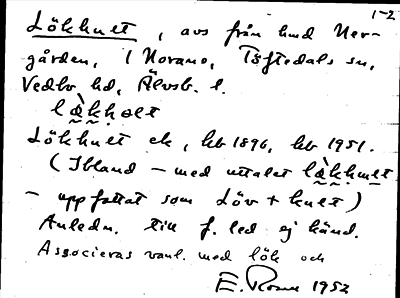 1-2
Lökhult, avs från hmd Ner-
gården, i Norane, Töftedals sn,
Vedbo hd, Älvsb. l.
lækhɵlt
Lökhult ek, hb 1896, hb 1951.
(Ibland – med uttalet lækhult
– uppfattat som Löv + hult)
Anledn. till f. led ej känd.
Associeras vanl. med lök och
E. Rosm 1952